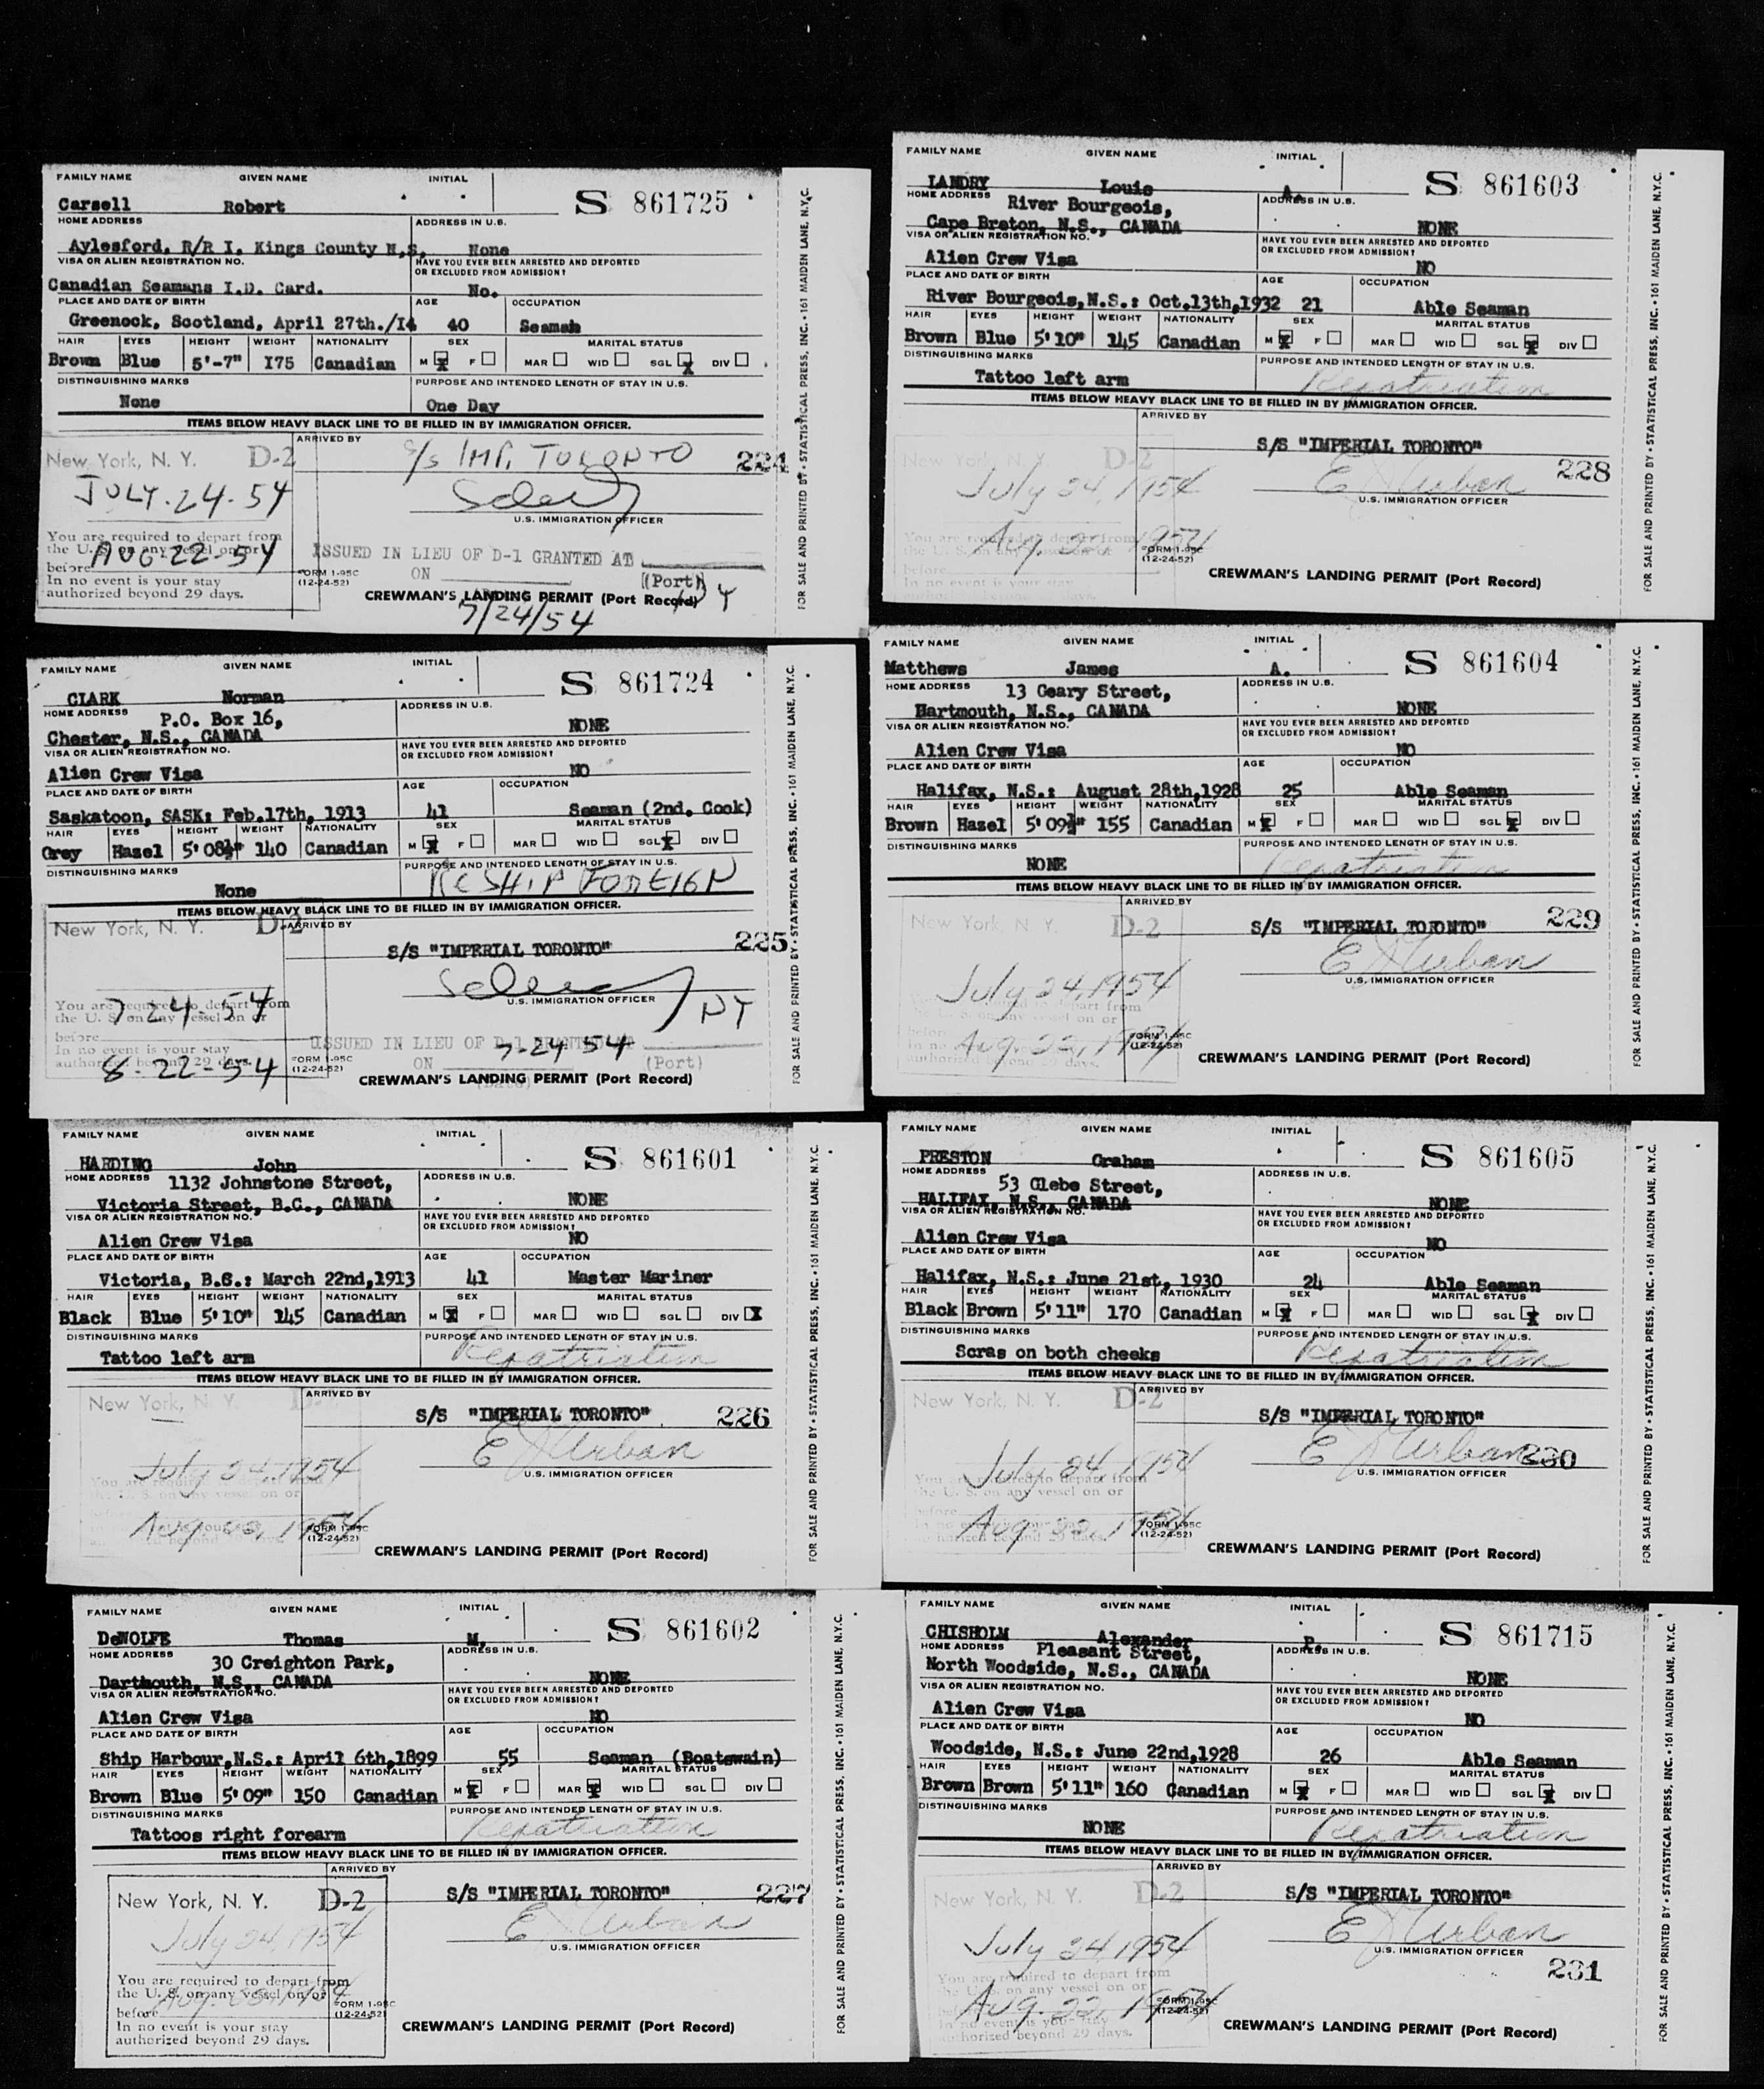 FAMILY NAME GIVEN NAME INITIAL
S 861725
Carsell Robert
HOME ADDRESS ADDRESS IN U.S.
Aylesford, R/R I, Kings County N.S. None
VISA OR ALIEN REGISTRATION NO. HAVE YOU EVER BEEN ARRESTED AND DEPORTED OR EXCLUDED FROM ADMISSION?
Canadian Seamans I.D. Card. No.
PLACE AND DATE OF BIRTH AGE OCCUPATION
Greenock, Scotland, April 27th./I4 40 Seaman
HAIR EYES HEIGHT WEIGHT NATIONALITY SEX MARITAL STATUS
Brown Blue 5'-7" I75 Canadian M X F MAR WID SGL X DIV
DISTINGUISHING MARKS PURPOSE AND INTENDED LENGTH OF STAY IN U.S.
None One Day
ITEMS BELOW HEAVY BLACK LINE TO BE FILLED IN BY IMMIGRATION OFFICER.
ARRIVED BY
New York, N. Y. D-2 S/S IMP. TORONTO 224
JULY-24-54
U.S. IMMIGRATION OFFICER
You are required to depart from
the U.S. on any vessel on or
before AUG-22-54
In no event is your stay
authorized beyond 29 days.
ISSUED IN LIEU OF D-1 GRANTED AT
ON (Port)
FORM 1-95C
(12-24-52)
CREWMAN'S LANDING PERMIT (Port Record)
7/24/54
FOR SALE AND PRINTED BY • STATISTICAL PRESS, INC. • 161 MAIDEN LANE, N.Y.C.
FAMILY NAME GIVEN NAME INITIAL
S 861724
CLARK Norman
HOME ADDRESS ADDRESS IN U.S.
P.O. Box 16,
Chester, N.S., CANADA NONE
VISA OR ALIEN REGISTRATION NO. HAVE YOU EVER BEEN ARRESTED AND DEPORTED OR EXCLUDED FROM ADMISSION?
Alien Crew Visa NO
PLACE AND DATE OF BIRTH AGE OCCUPATION
Saskatoon, SASK: Feb.17th, 1913 41 Seaman (2nd. Cook)
HAIR EYES HEIGHT WEIGHT NATIONALITY SEX MARITAL STATUS
Grey Hazel 5'08½" 140 Canadian M X F MAR WID SGL X DIV
DISTINGUISHING MARKS PURPOSE AND INTENDED LENGTH OF STAY IN U.S.
None RESHIP FOREIGN
ITEMS BELOW HEAVY BLACK LINE TO BE FILLED IN BY IMMIGRATION OFFICER.
New York, N. Y. D-2 ARRIVED BY
S/S "IMPERIAL TORONTO" 225
U.S. IMMIGRATION OFFICER
NY
7-24-54
You are required to depart from
the U.S. on any vessel on or
before
In no event is your stay
authorized beyond 29 days.
8-22-54
ISSUED IN LIEU OF D-1 GRANTED
ON 7-24 54 (Port)
FORM 1-95C
(12-24-52)
CREWMAN'S LANDING PERMIT (Port Record)
FOR SALE AND PRINTED BY • STATISTICAL PRESS, INC. • 161 MAIDEN LANE, N.Y.C.
FAMILY NAME GIVEN NAME INITIAL
S 861601
HARDING John
HOME ADDRESS ADDRESS IN U.S.
1132 Johnstone Street,
Victoria Street, B.C., CANADA NONE
VISA OR ALIEN REGISTRATION NO. HAVE YOU EVER BEEN ARRESTED AND DEPORTED OR EXCLUDED FROM ADMISSION?
Alien Crew Visa NO
PLACE AND DATE OF BIRTH AGE OCCUPATION
Victoria, B.C.: March 22nd,1913 41 Master Mariner
HAIR EYES HEIGHT WEIGHT NATIONALITY SEX MARITAL STATUS
Black Blue 5'10" 145 Canadian M X F MAR WID SGL DIV X
DISTINGUISHING MARKS PURPOSE AND INTENDED LENGTH OF STAY IN U.S.
Tattoo left arm Repatriation
ITEMS BELOW HEAVY BLACK LINE TO BE FILLED IN BY IMMIGRATION OFFICER.
New York, N. Y. D-2 ARRIVED BY
S/S "IMPERIAL TORONTO" 226
E J Urban
U.S. IMMIGRATION OFFICER
July 24, 1954
Aug. 22, 1954
FORM 1-95C
(12-24-52)
CREWMAN'S LANDING PERMIT (Port Record)
FOR SALE AND PRINTED BY • STATISTICAL PRESS, INC. • 161 MAIDEN LANE, N.Y.C.
FAMILY NAME GIVEN NAME INITIAL
S 861602
DeWOLFE Thomas M.
HOME ADDRESS ADDRESS IN U.S.
30 Creighton Park,
Dartmouth, N.S., CANADA NONE
VISA OR ALIEN REGISTRATION NO. HAVE YOU EVER BEEN ARRESTED AND DEPORTED OR EXCLUDED FROM ADMISSION?
Alien Crew Visa NO
PLACE AND DATE OF BIRTH AGE OCCUPATION
Ship Harbour,N.S.: April 6th,1899 55 Seaman (Boatswain)
HAIR EYES HEIGHT WEIGHT NATIONALITY SEX MARITAL STATUS
Brown Blue 5'09" 150 Canadian M X F MAR X WID SGL DIV
DISTINGUISHING MARKS PURPOSE AND INTENDED LENGTH OF STAY IN U.S.
Tattoos right forearm Repatriation
ITEMS BELOW HEAVY BLACK LINE TO BE FILLED IN BY IMMIGRATION OFFICER.
ARRIVED BY
New York, N. Y. D-2 S/S "IMPERIAL TORONTO" 227
July 24, 1954 E J Urban
U.S. IMMIGRATION OFFICER
You are required to depart from
the U.S. on any vessel on or
before Aug. 22, 1954
In no event is your stay
authorized beyond 29 days.
FORM 1-95C
(12-24-52)
CREWMAN'S LANDING PERMIT (Port Record)
FOR SALE AND PRINTED BY • STATISTICAL PRESS, INC. • 161 MAIDEN LANE, N.Y.C.
FAMILY NAME GIVEN NAME INITIAL
S 861603
LANDRY Louis A.
HOME ADDRESS ADDRESS IN U.S.
River Bourgeois,
Cape Breton, N.S., CANADA NONE
VISA OR ALIEN REGISTRATION NO. HAVE YOU EVER BEEN ARRESTED AND DEPORTED OR EXCLUDED FROM ADMISSION?
Alien Crew Visa NO
PLACE AND DATE OF BIRTH AGE OCCUPATION
River Bourgeois,N.S.: Oct.13th,1932 21 Able Seaman
HAIR EYES HEIGHT WEIGHT NATIONALITY SEX MARITAL STATUS
Brown Blue 5'10" 145 Canadian M X F MAR WID SGL X DIV
DISTINGUISHING MARKS PURPOSE AND INTENDED LENGTH OF STAY IN U.S.
Tattoo left arm Repatriation
ITEMS BELOW HEAVY BLACK LINE TO BE FILLED IN BY IMMIGRATION OFFICER.
ARRIVED BY
New York, N. Y. D-2 S/S "IMPERIAL TORONTO" 228
July 24, 1954 E J Urban
U.S. IMMIGRATION OFFICER
Aug. 22, 1954
FORM 1-95C
(12-24-52)
CREWMAN'S LANDING PERMIT (Port Record)
FOR SALE AND PRINTED BY • STATISTICAL PRESS, INC. • 161 MAIDEN LANE, N.Y.C.
FAMILY NAME GIVEN NAME INITIAL
S 861604
Matthews James A.
HOME ADDRESS ADDRESS IN U.S.
13 Geary Street,
Hartmouth, N.S., CANADA NONE
VISA OR ALIEN REGISTRATION NO. HAVE YOU EVER BEEN ARRESTED AND DEPORTED OR EXCLUDED FROM ADMISSION?
Alien Crew Visa NO
PLACE AND DATE OF BIRTH AGE OCCUPATION
Halifax, N.S.: August 28th,1928 25 Able Seaman
HAIR EYES HEIGHT WEIGHT NATIONALITY SEX MARITAL STATUS
Brown Hazel 5'09½" 155 Canadian M X F MAR WID SGL X DIV
DISTINGUISHING MARKS PURPOSE AND INTENDED LENGTH OF STAY IN U.S.
NONE Repatriation
ITEMS BELOW HEAVY BLACK LINE TO BE FILLED IN BY IMMIGRATION OFFICER.
ARRIVED BY
New York, N. Y. D-2 S/S "IMPERIAL TORONTO" 229
E J Urban
U.S. IMMIGRATION OFFICER
July 24, 1954
Aug. 22, 1954
FORM 1-95C
(12-24-52)
CREWMAN'S LANDING PERMIT (Port Record)
FOR SALE AND PRINTED BY • STATISTICAL PRESS, INC. • 161 MAIDEN LANE, N.Y.C.
FAMILY NAME GIVEN NAME INITIAL
S 861605
PRESTON Graham
HOME ADDRESS ADDRESS IN U.S.
53 Glebe Street,
HALIFAX, N.S., CANADA NONE
VISA OR ALIEN REGISTRATION NO. HAVE YOU EVER BEEN ARRESTED AND DEPORTED OR EXCLUDED FROM ADMISSION?
Alien Crew Visa NO
PLACE AND DATE OF BIRTH AGE OCCUPATION
Halifax, N.S.: June 21st, 1930 24 Able Seaman
HAIR EYES HEIGHT WEIGHT NATIONALITY SEX MARITAL STATUS
Black Brown 5'11" 170 Canadian M X F MAR WID SGL X DIV
DISTINGUISHING MARKS PURPOSE AND INTENDED LENGTH OF STAY IN U.S.
Scras on both cheeks Repatriation
ITEMS BELOW HEAVY BLACK LINE TO BE FILLED IN BY IMMIGRATION OFFICER.
New York, N. Y. D-2 ARRIVED BY
S/S "IMPERIAL TORONTO"
E J Urban 230
U.S. IMMIGRATION OFFICER
July 24 1954
You are required to depart from
the U.S. on any vessel on or
before
Aug 22, 1954
FORM 1-95C
(12-24-52)
CREWMAN'S LANDING PERMIT (Port Record)
FOR SALE AND PRINTED BY • STATISTICAL PRESS, INC. • 161 MAIDEN LANE, N.Y.C.
FAMILY NAME GIVEN NAME INITIAL
S 861715
CHISHOLM Alexander P.
HOME ADDRESS ADDRESS IN U.S.
Pleasant Street,
North Woodside, N.S., CANADA NONE
VISA OR ALIEN REGISTRATION NO. HAVE YOU EVER BEEN ARRESTED AND DEPORTED OR EXCLUDED FROM ADMISSION?
Alien Crew Visa NO
PLACE AND DATE OF BIRTH AGE OCCUPATION
Woodside, N.S.: June 22nd,1928 26 Able Seaman
HAIR EYES HEIGHT WEIGHT NATIONALITY SEX MARITAL STATUS
Brown Brown 5'11" 160 Canadian M X F MAR WID SGL X DIV
DISTINGUISHING MARKS PURPOSE AND INTENDED LENGTH OF STAY IN U.S.
NONE Repatriation
ITEMS BELOW HEAVY BLACK LINE TO BE FILLED IN BY IMMIGRATION OFFICER.
ARRIVED BY
New York, N. Y. D-2 S/S "IMPERIAL TORONTO"
July 24, 1954 E J Urban
U.S. IMMIGRATION OFFICER
231
You are required to depart from
the U.S. on any vessel on or
Aug. 22, 1954
In no event is your stay
authorized beyond 29 days.
FORM 1-95C
(12-24-52)
CREWMAN'S LANDING PERMIT (Port Record)
FOR SALE AND PRINTED BY • STATISTICAL PRESS, INC. • 161 MAIDEN LANE, N.Y.C.